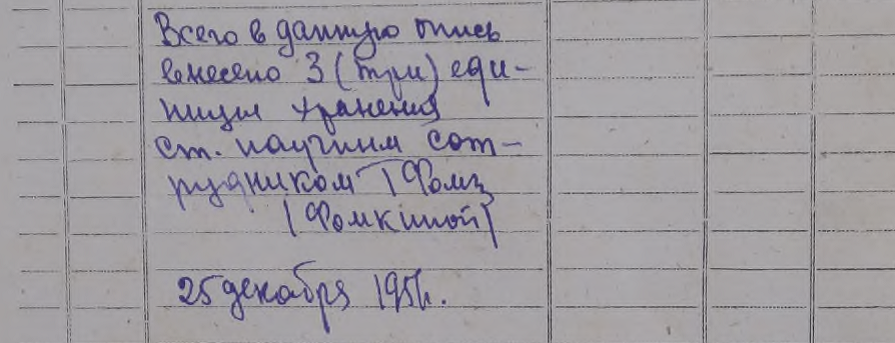 Всего в данную опись
внесено 3 (три) еди-
ницы хранения
ст. научным сот-
рудником
(Фомкиной)
25 декабря